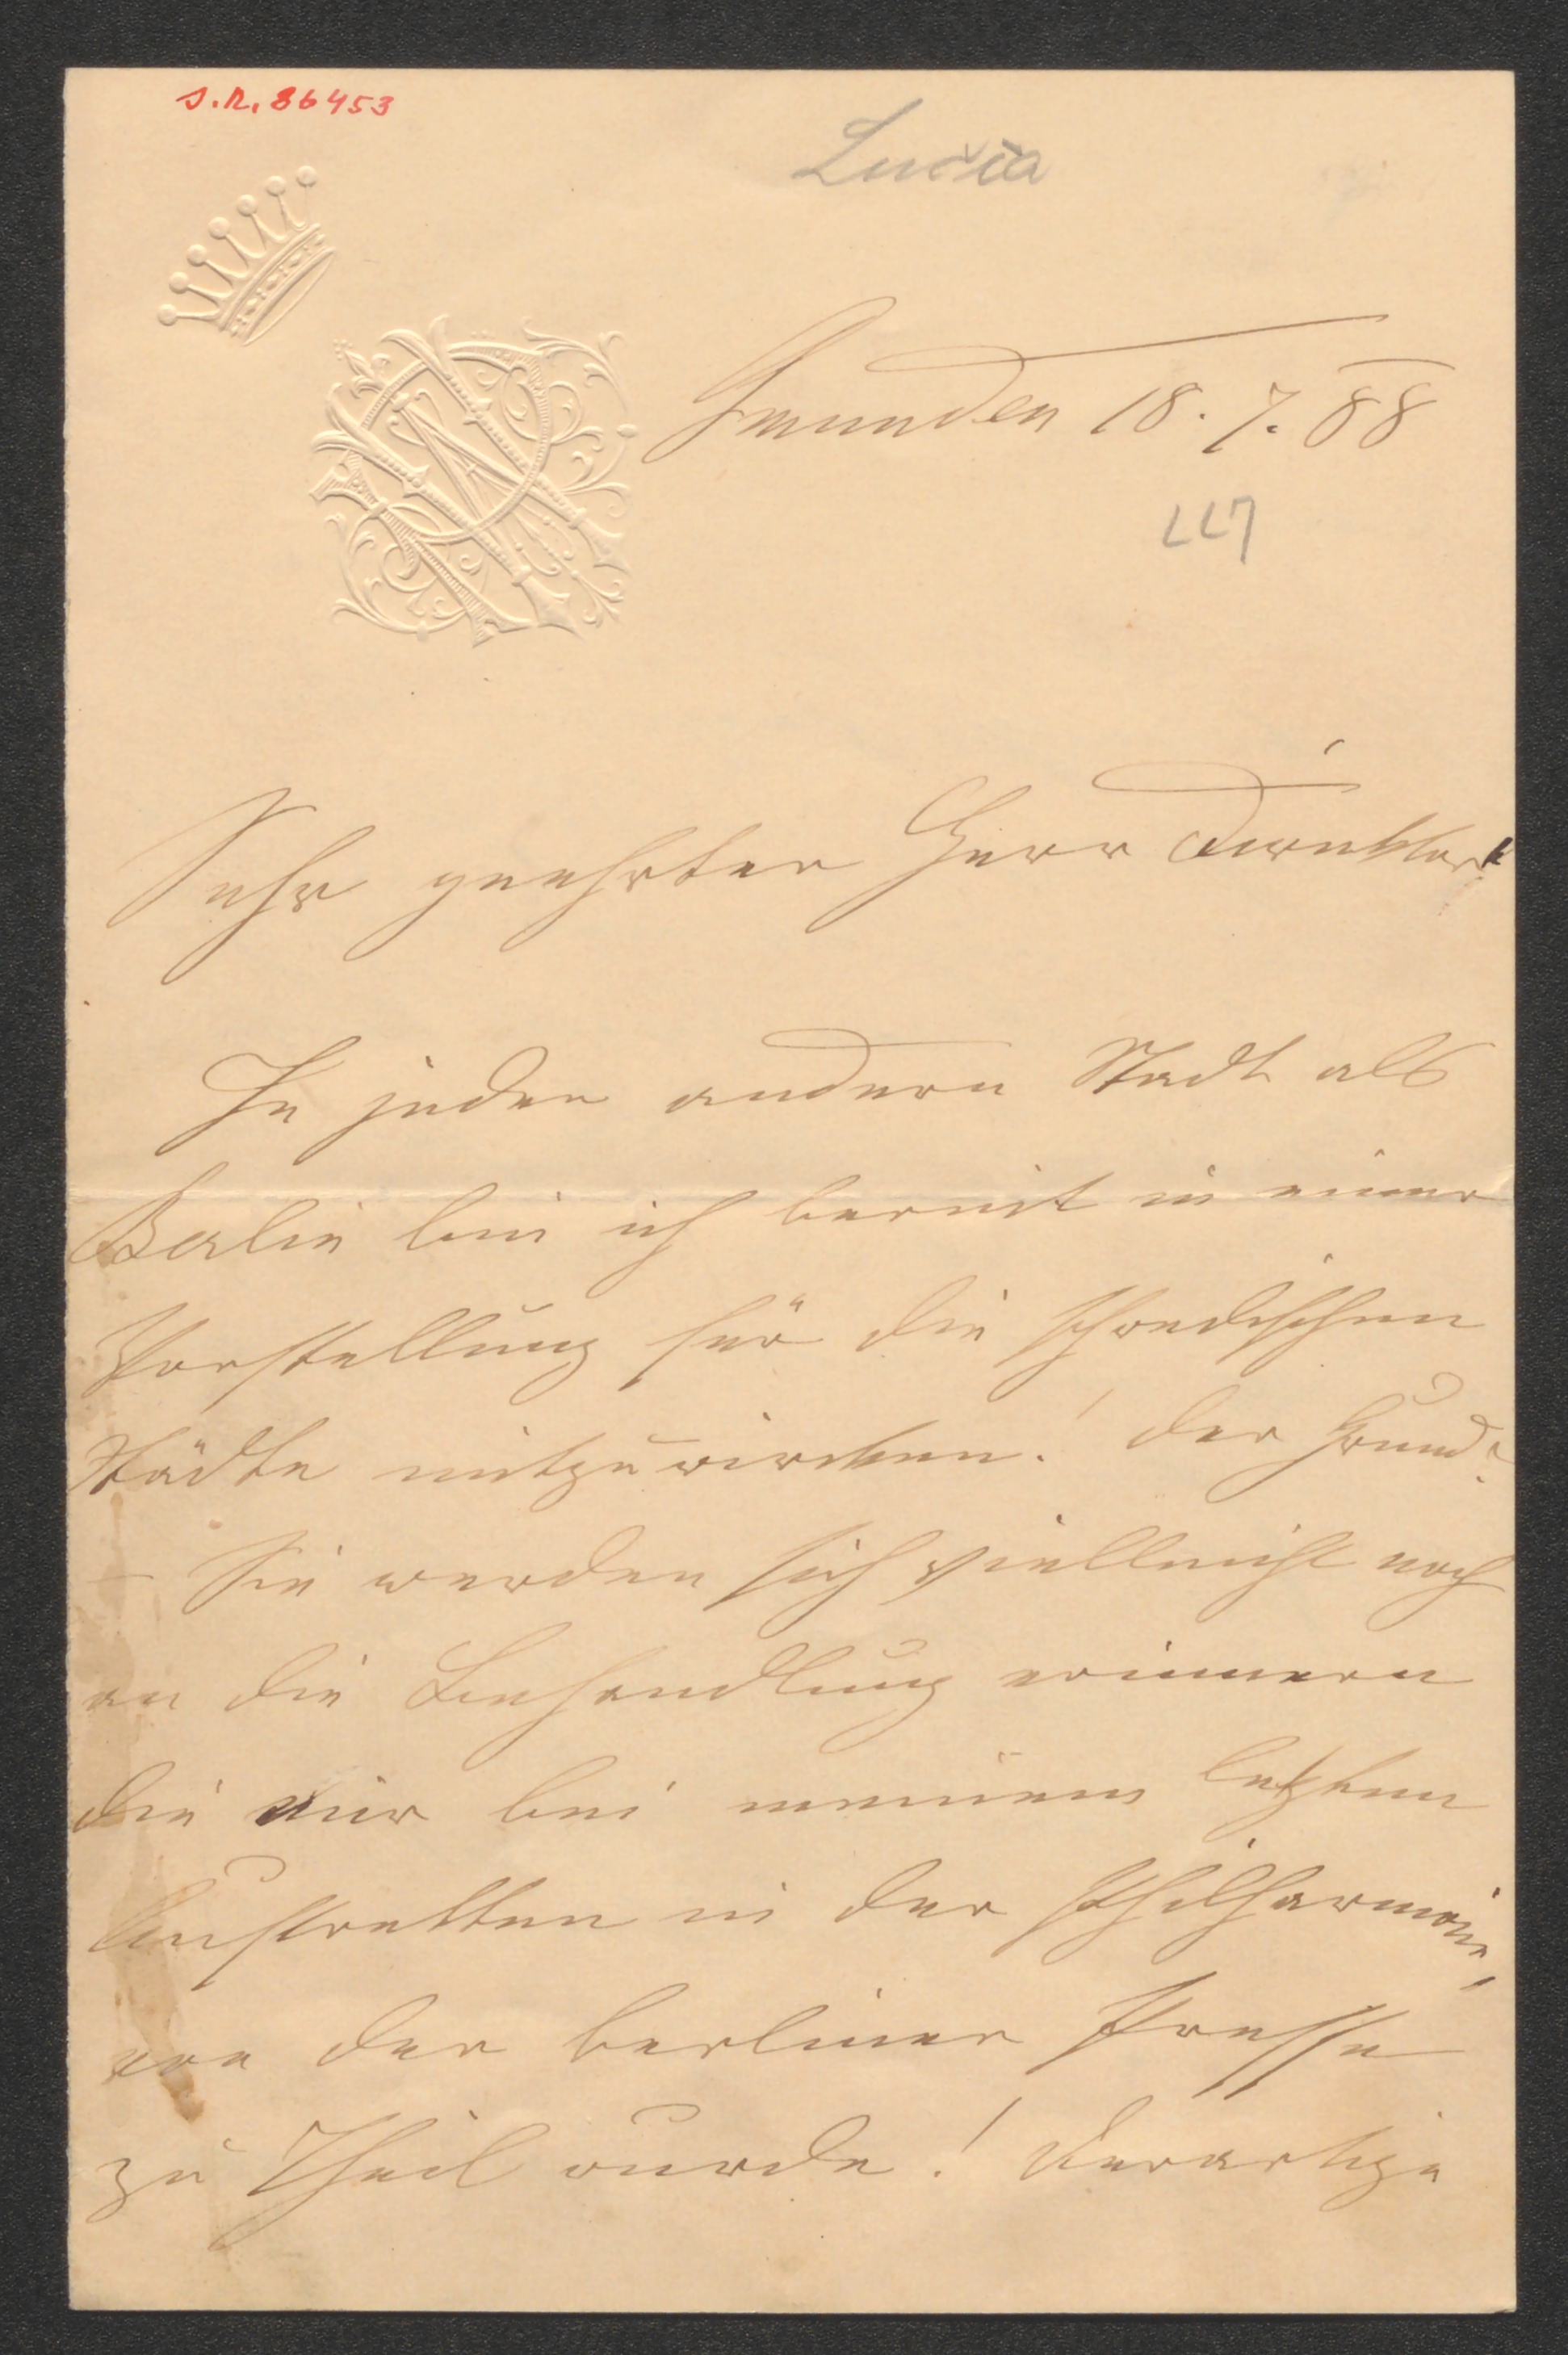 J.N. 86453
Lucia
Gmunden 18. 7. 88
LL7
Sehr geehrter Herr Direktor!
In jeder andern Stadt als
Berlin bin ich bereit in einer
Vorstellung für die schwedischen
Städte mitzuwirken! Der Grund?
– Sie werden sich vielleicht noch
an die Behandlung erinnern
die mir bei meinem letzten
Auftretten in der Philharmonie,
von der berliner Presse
zu Theil wurde! Derartige